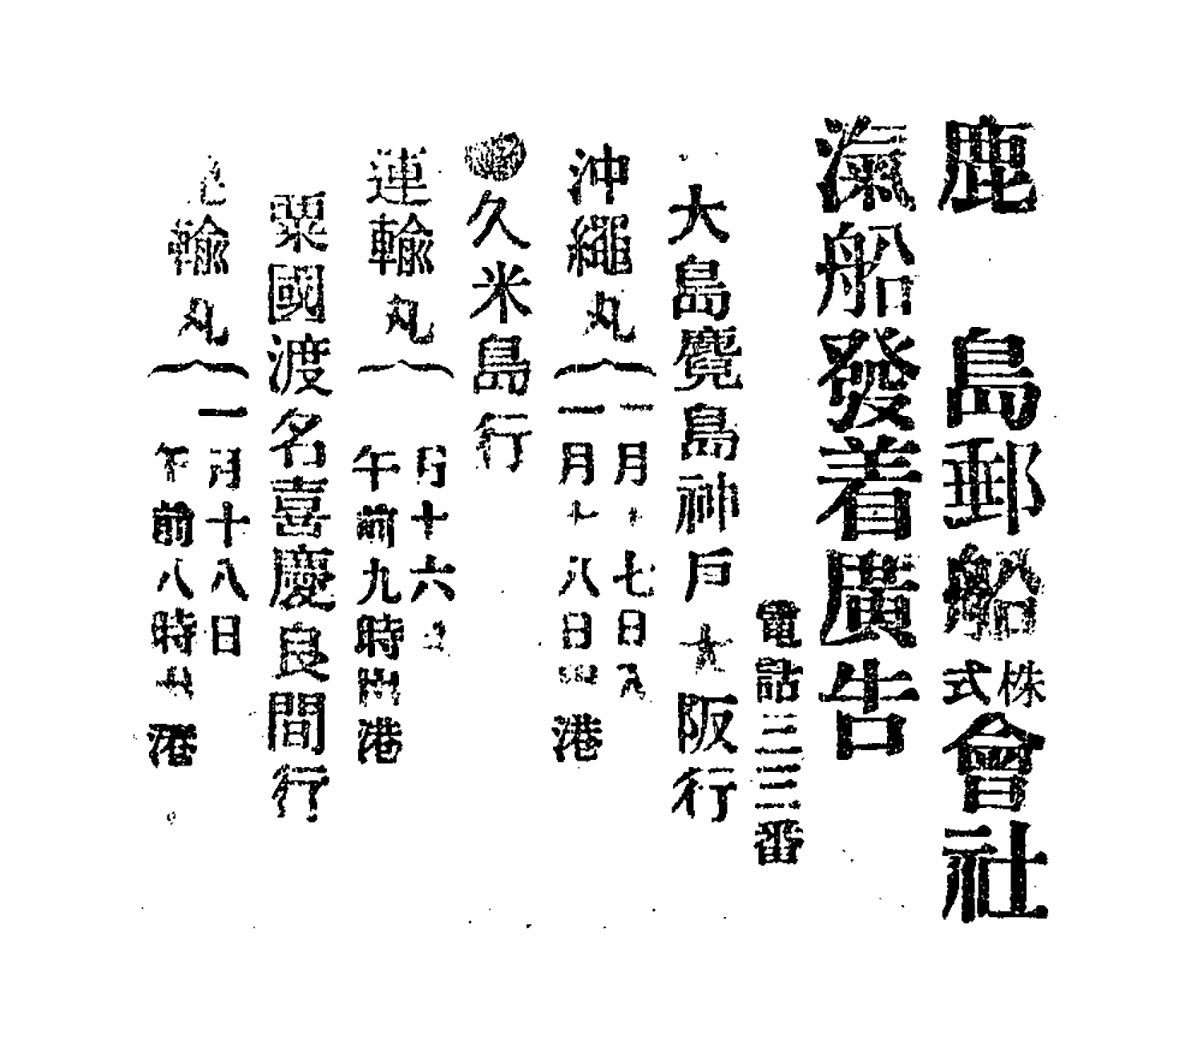 鹿島郵船株式會社
滊船發着廣告
電話三三番
大島鹿島神戸大阪行
沖繩丸
一月十七日入
一月十八日出港
久米島行
運輸丸
月十六
午前九時出港
粟國渡名喜慶良間行
輸丸
一月十八日
午前八時出港